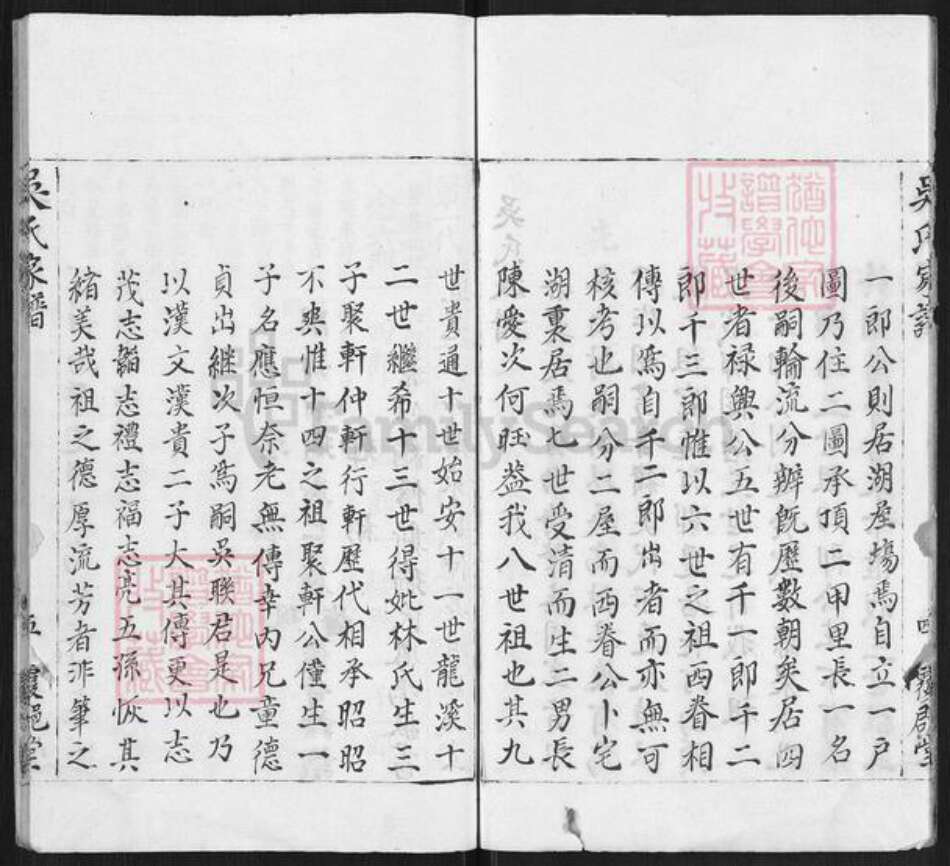 吳氏家譜
一郎公則居湖屋塲焉自立一戶
圖乃住二圖承頂二甲里長一名
後嗣輪流分辦既歷數朝矣居四
世者禄興公五世有千一郎千二
郎千三郎惟以六世之祖西眷相
傳以爲自千二郎出者而亦無可
核考也嗣分二屋而西眷公卜宅
湖裏居焉七世受清而生二男長
陳愛次何旺益我八世祖也其九
世貴通十世始安十一世龍溪十
二世繼希十三世得妣林氏生三
子聚軒仲軒行軒歷代相承昭昭
不爽惟十四之祖聚軒公僅生一
子名應恒奈老無傳幸内兄童德
貞出継次子爲嗣吳聯君是也乃
以漢文漢貴二子大其傳更以志
茂志韜志禮志福志亮五孫恢其
緒美哉祖之德厚流芳者非筆之
吳氏家譜
五
FamilySearch